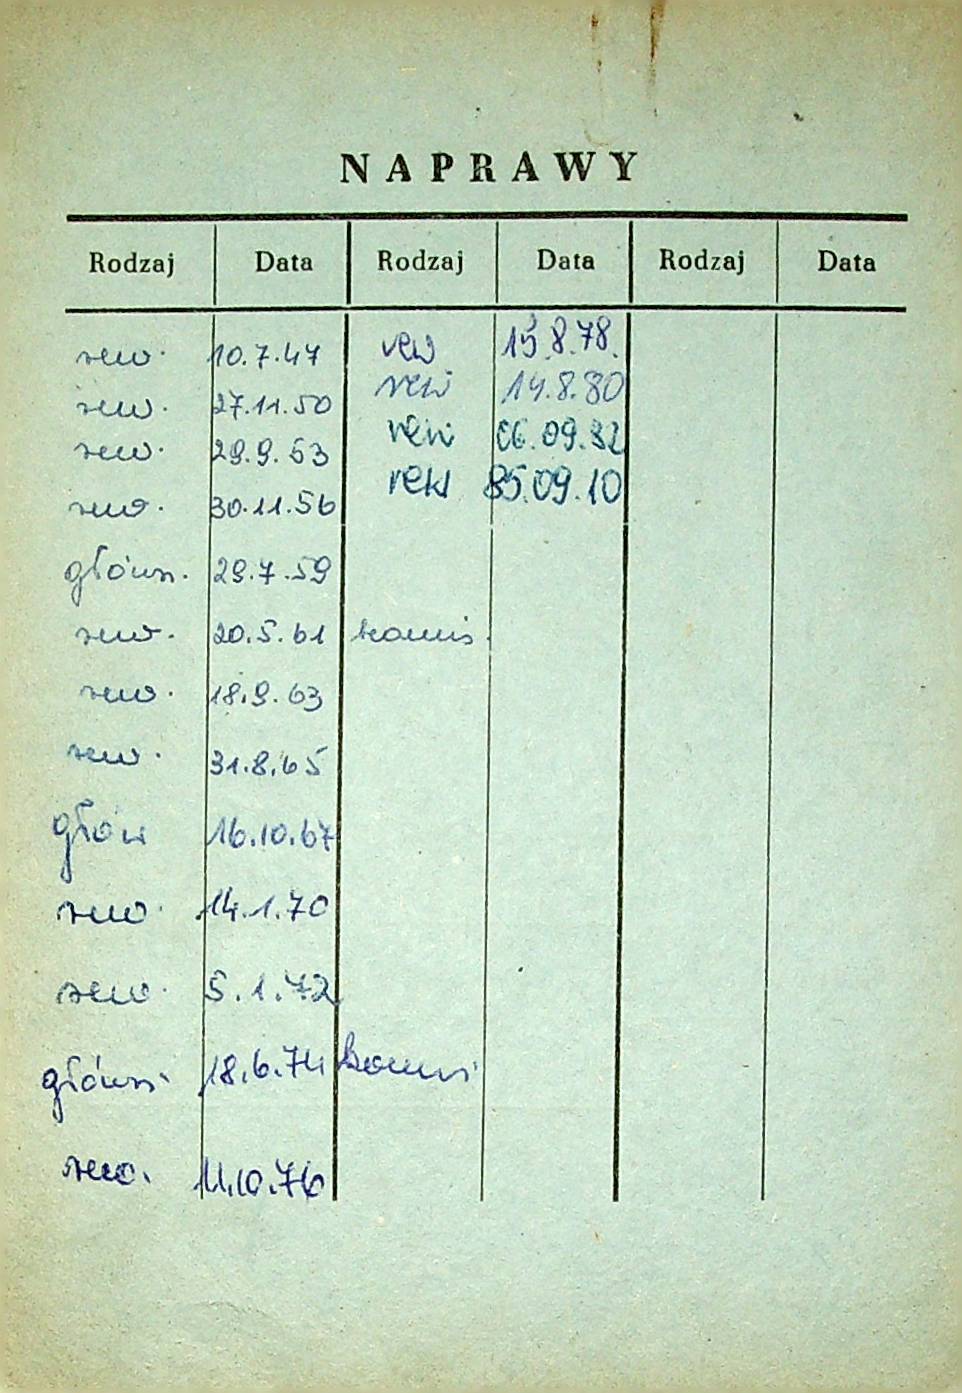 NAPRAWY
Rodzaj Data Rodzaj Data Rodzaj Data
rew. 10.7.47 rew 15.8.78.
rew. 27.11.50 rew 14.8.80
rew. 29.9.53 rew 06.09.82
rew. 30.11.56 rew 85.09.10
główn. 29.7.59
rew. 20.5.61 komis.
rew. 18.9.63
rew. 31.8.65
głów 16.10.67
rew. 14.1.70
rew. 5.1.72
główn. 18.6.74 komis
rew. 11.10.76